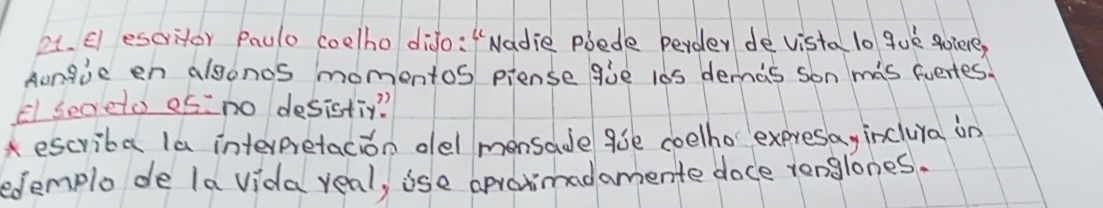 21. El escritor Paulo coelho dijo: "Nadie puede perder de vista lo qué quiere,
Aunque en algunos momentos piense que los demás son más fuertes.
El secreto es: no desistir."
* escriba la interpretación del mensaje que coelho expresa, incluya un
ejemplo de la vida real, use aproximadamente doce renglones.